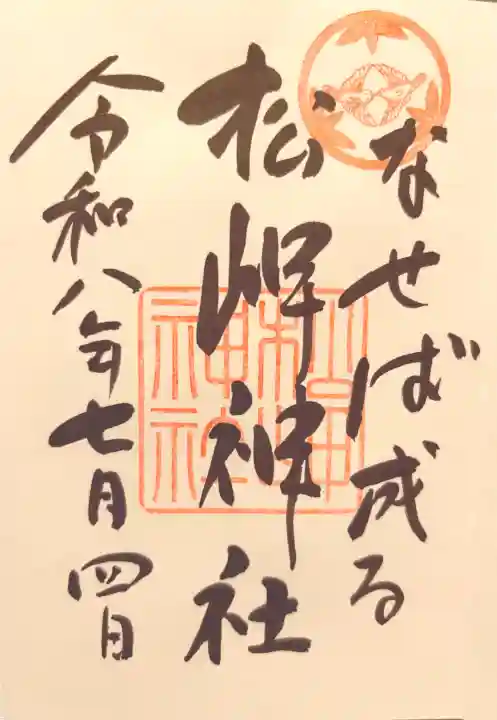 なせば成る
松岬神社
松岬神社
令和八年七月四日